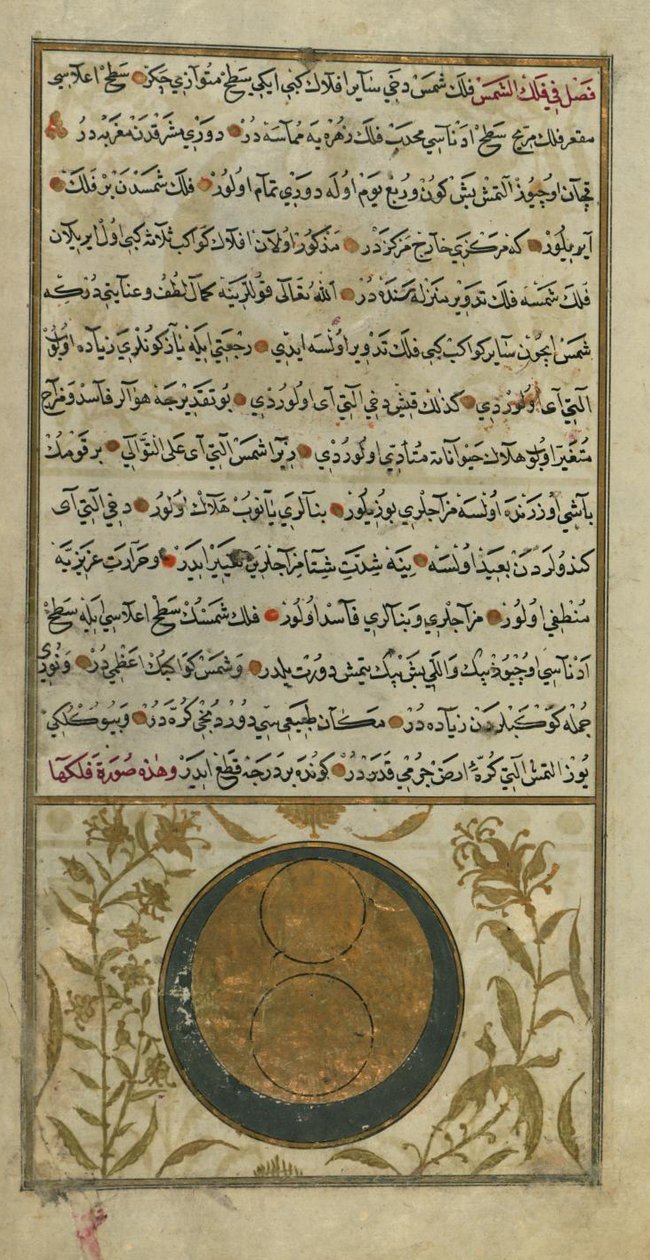 فَصل في فلك الشمس فلك شمس دخي سایر افلاك كبي ایكي سطح متوازي چكر سطح اعلاسي
مقعر فلك مریخ سطح ادناسي محدب فلك زهره یه مماسه در دوري مشرقدن مغربه در
قچان اوچیوز التمش بش كون و ربع یوم اوله دوري تمام اولور فلك شمسدن بر فلك
آیریلور كه مركزي خارج مركز در مذكور اولان افلاك كواكب ثلاثه كبي اول ایریلان
فلك شمسه فلك تدویر منزله سنده در الله تعالی قوللرینه كمال لطف و عنایتي در كه
شمس ایچون سایر كواكب كبي فلك تدویر اولسه ایدي رجعتي ایله یاز كونلري زیاده اولوب
التي آی اولوردي كذلك قیش دخي التي آی اولوردي بو تقدیرجه هوالر فاسد و مزاج
متغیر اولوب هلاك حیواناته متأدي اولوردي زیرا شمس التي آی علی التوالي بر قومك
باشي اوزرنده اولسه مزاجلري بوزیلور بناتلري یانوب هلاك اولور دخي التي آی
كندولردن بعید اولسه ینه شدت شتا مزاجلرین تغییر ایدر و حرارت عزیزیه
منطفي اولور مزاجلري و بناتلري فاسد اولور فلك شمسك سطح اعلاسي ایله سطح
ادناسي اوچیوز بیك و اللي بش بیك یتمش دورت یلدر و شمس كواكبك اعظمي در و نوري
جمله كوكبلردن زیاده در مكان طبیعي سي دوردنجي كره در و بیوكلكي
یوز التمش التي كره ارض جرمي قدر در كونده بر درجه قطع ایدر وهذه صورة فلكها